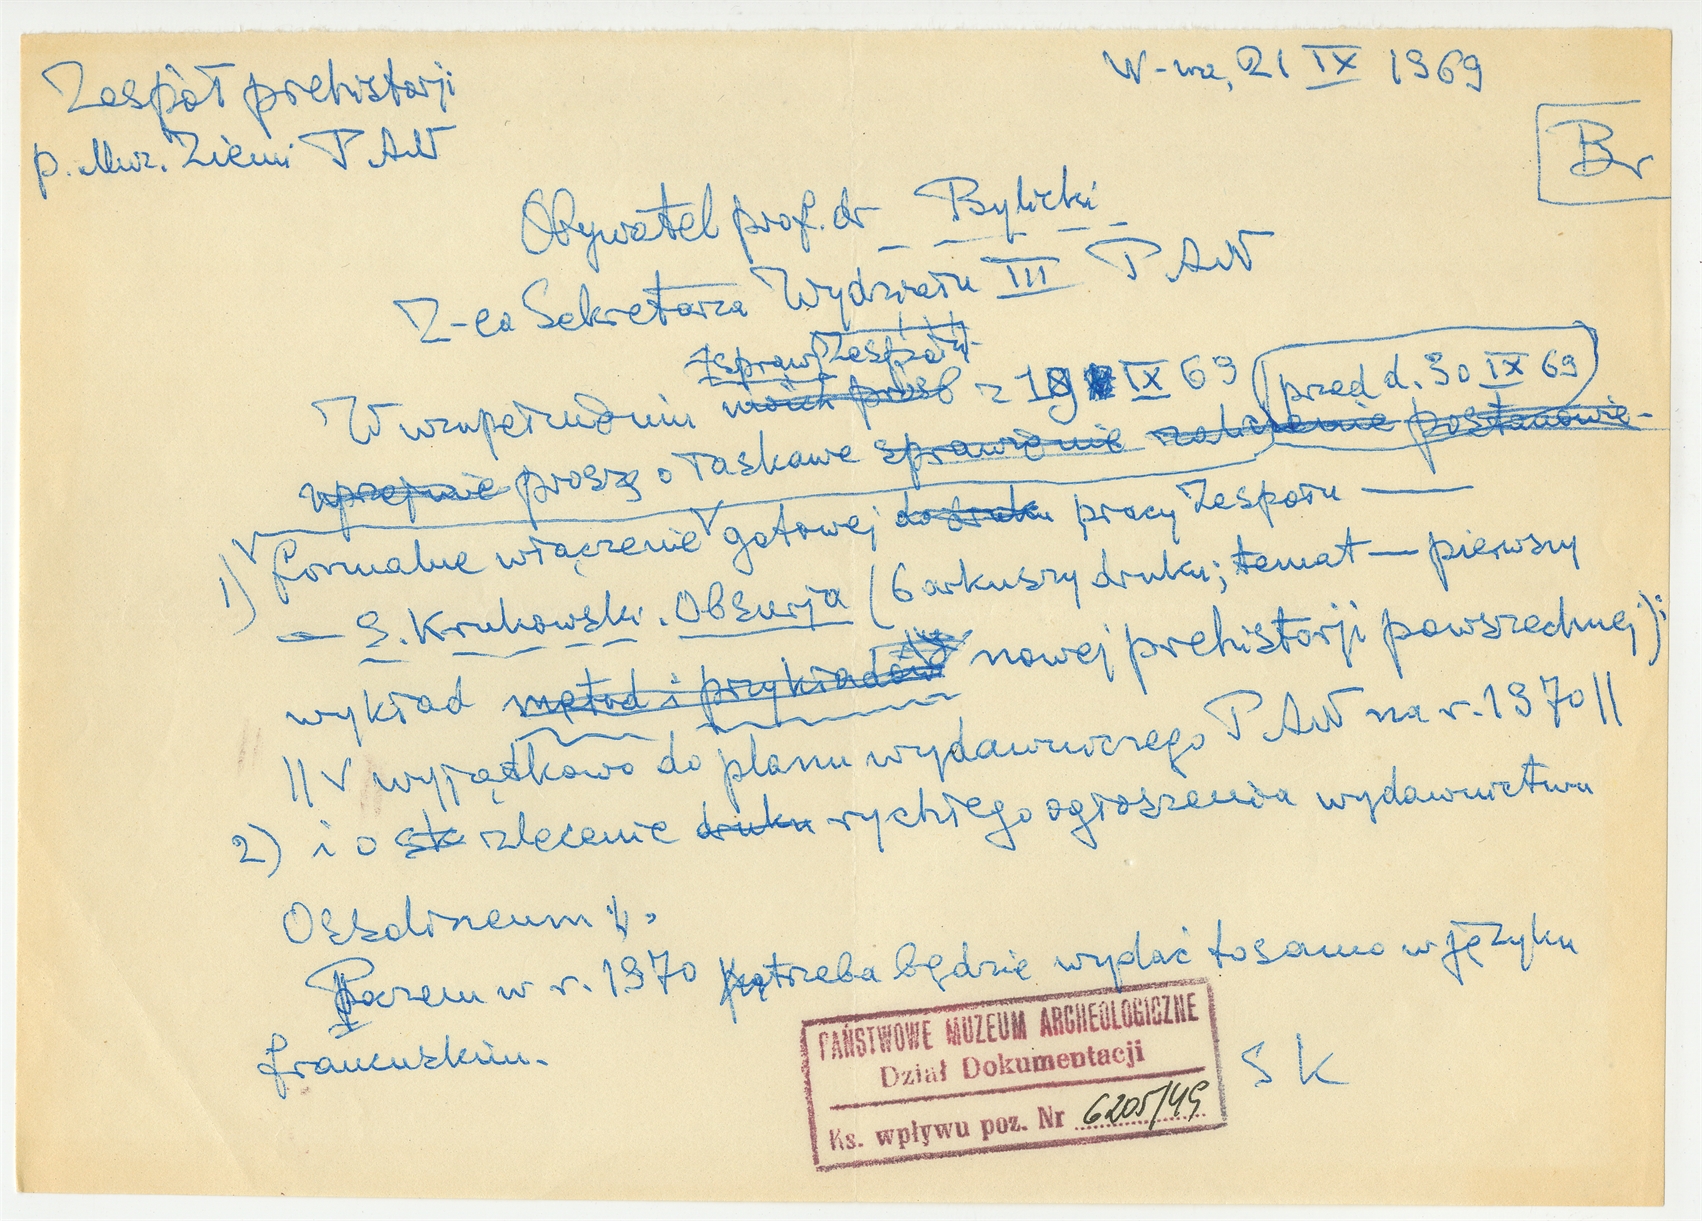 Zespół prehistorji
W-wa, 21 IX 1969
p. Muz. Ziemi PAN
Br
Obywatel prof. dr Bylicki
Z-ca Sekretarza Wydziału III PAN
spraw Zespołu
W uzupełnieniu moich próśb z 19 IX 69 przed d. 30 IX 69
uprzejmie proszę o łaskawe postanowie-
1) formalne włączenie gotowej do druku pracy Zespołu —
— S. Krukowski. Obsurja (6 arkuszy druku; temat — pierwszy
wykład metod i przykładów nowej prehistorji powszechnej);
|| V wyjątkowo do planu wydawniczego PAN na r. 1970 ||
2) i o zlecenie druku rychłego ogłoszenia wydawnictwu
Ossolineum.
Poczem w r. 1970 potrzeba będzie wydać to samo w języku
francuskim.
SK
PAŃSTWOWE MUZEUM ARCHEOLOGICZNE
Dział Dokumentacji
Ks. wpływu poz. Nr 6205/49